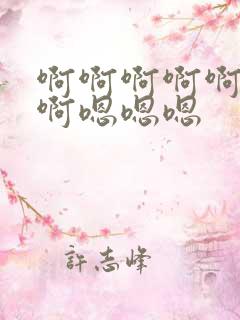 啊啊啊啊啊
啊嗯嗯嗯
許志峰